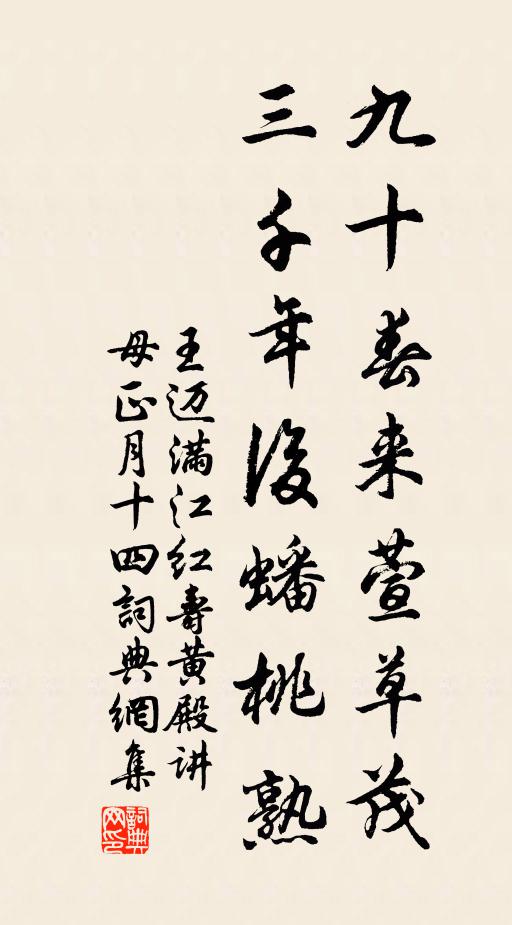 九十春来萱草茂
三千年後蟠桃熟
王迈满江红壽黄殿讲
母正月十四詞典網集
詞典
网印